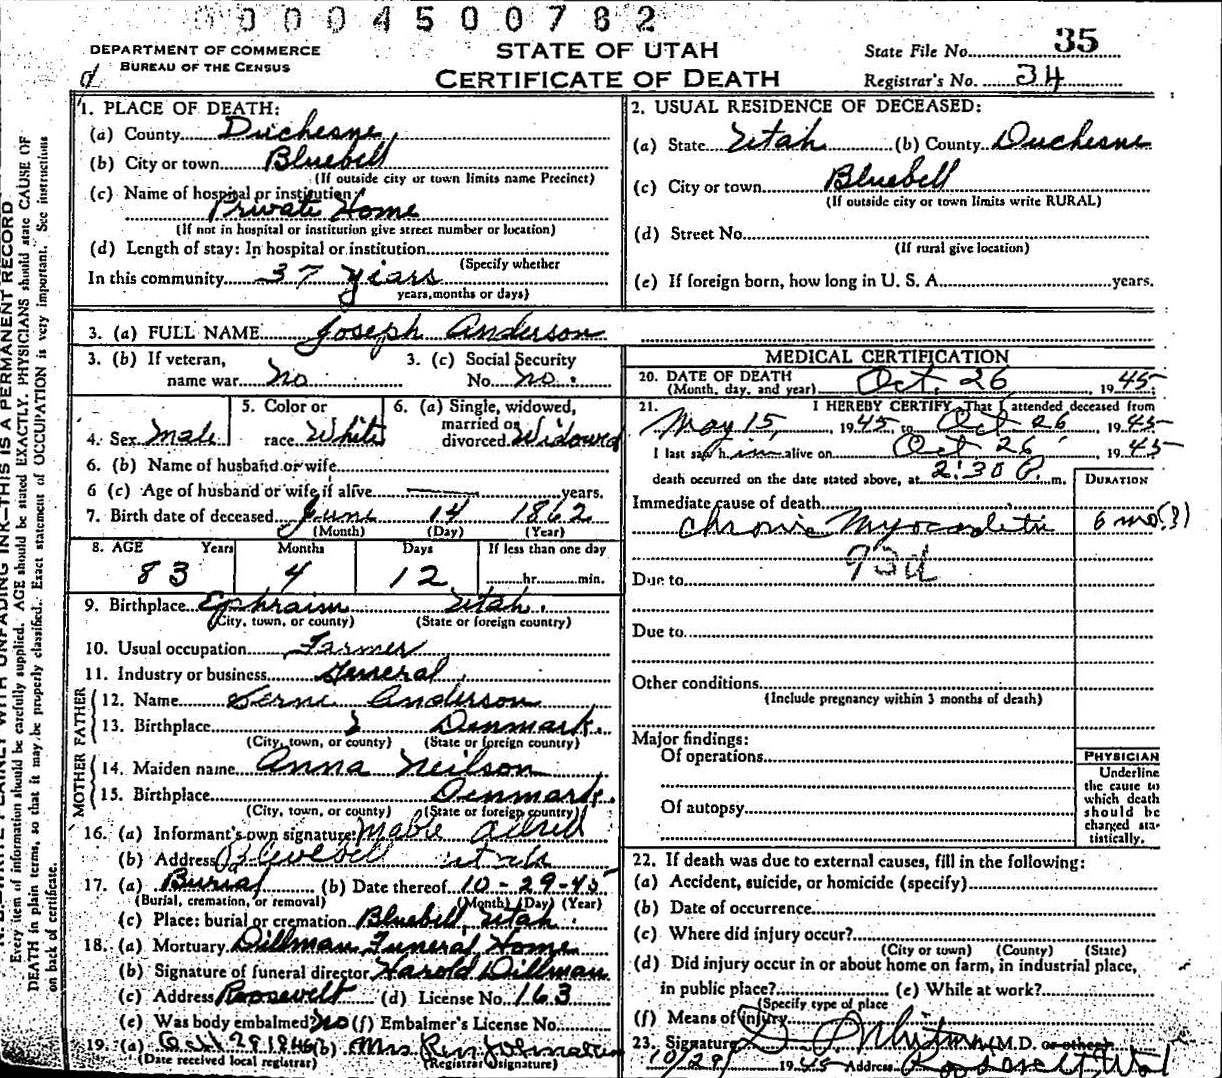 0000450078 2
DEPARTMENT OF COMMERCE
BUREAU OF THE CENSUS
STATE OF UTAH
CERTIFICATE OF DEATH
State File No. 35
Registrar's No. 34
1. PLACE OF DEATH:
(a) County Duchesne
(b) City or town Bluebell
(If outside city or town limits name Precinct)
(c) Name of hospital or institution:
Private Home
(If not in hospital or institution give street number or location)
(d) Length of stay: In hospital or institution
(Specify whether
In this community 37 years
years, months or days)
2. USUAL RESIDENCE OF DECEASED:
(a) State Utah (b) County Duchesne
(c) City or town Bluebell
(If outside city or town limits write RURAL)
(d) Street No.
(If rural give location)
(e) If foreign born, how long in U. S. A. years.
3. (a) FULL NAME Joseph Anderson
3. (b) If veteran,
name war no
3. (c) Social Security
No. no.
4. Sex Male
5. Color or
race White
6. (a) Single, widowed,
married or
divorced Widowed
6. (b) Name of husband or wife
6 (c) Age of husband or wife, if alive years.
7. Birth date of deceased June 14 1862
(Month) (Day) (Year)
8. AGE Years Months Days If less than one day
83 4 12 hr. min.
9. Birthplace Ephraim Utah.
(City, town, or county) (State or foreign country)
10. Usual occupation Farmer
11. Industry or business General
FATHER
12. Name Serne Anderson
13. Birthplace Denmark.
(City, town, or county) (State or foreign country)
MOTHER
14. Maiden name Anna Neilson
15. Birthplace Denmark.
(City, town, or county) (State or foreign country)
16. (a) Informant's own signature: Mable Allred
(b) Address Bluebell utah
17. (a) Burial (b) Date thereof 10-29-45
(Burial, cremation, or removal) (Month) (Day) (Year)
(c) Place: burial or cremation Bluebell, Utah.
18. (a) Mortuary Dillman Funeral Home
(b) Signature of funeral director Harold Dillman
(c) Address Roosevelt (d) License No. 163
(e) Was body embalmed? No (f) Embalmer's License No.
19. (a) Oct 29 (b) Mrs.
(Date received local registrar) (Registrar's signature)
MEDICAL CERTIFICATION
20. DATE OF DEATH
(Month, day, and year) Oct. 26 1945
21. I HEREBY CERTIFY, That I attended deceased from
May 15, 1945 to Oct 26 1945
I last saw h im alive on Oct 26 1945
death occurred on the date stated above, at 2:30 P. m.
DURATION
Immediate cause of death
Chronic Myocarditis 6 mo(?)
93d
Due to
Due to
Other conditions
(Include pregnancy within 3 months of death)
Major findings:
Of operations
Of autopsy
PHYSICIAN
Underline
the cause to
which death
should be
charged sta-
tistically.
22. If death was due to external causes, fill in the following:
(a) Accident, suicide, or homicide (specify)
(b) Date of occurrence
(c) Where did injury occur?
(City or town) (County) (State)
(d) Did injury occur in or about home on farm, in industrial place,
in public place? (e) While at work?
(Specify type of place
(f) Means of injury
23. Signature (M.D. or other)
10/29/ 1945 Address Roosevelt, Utah
THIS IS A PERMANENT RECORD
Every item of information should be carefully supplied. AGE should be stated EXACTLY. PHYSICIANS should state CAUSE OF
DEATH in plain terms, so that it may be properly classified. Exact statement of OCCUPATION is very important. See instructions
on back of certificate.